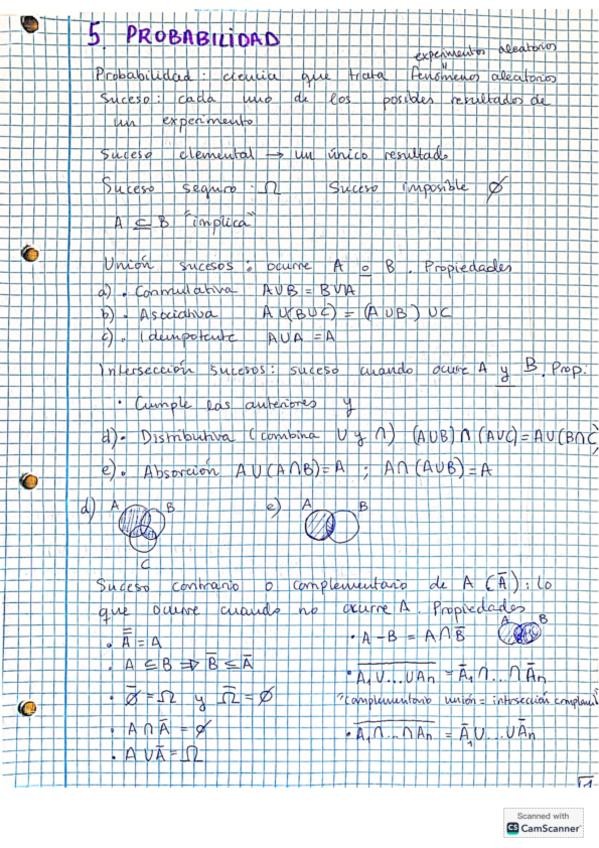 5. PROBABILIDAD
experimentos aleatorios
Probabilidad: ciencia que trata fenómenos aleatorios
Suceso: cada uno de los posibles resultados de
un experimento
Suceso elemental → un único resultado
Suceso seguro: Ω Suceso imposible ∅
A ⊆ B "implica"
Unión sucesos: ocurre A o B. Propiedades
a). Conmutativa A∪B = B∪A
b). Asociativa A∪(B∪C) = (A∪B)∪C
c). Idempotente A∪A = A
Intersección sucesos: suceso cuando ocurre A y B. Prop:
· Cumple las anteriores y
d). Distributiva (combina ∪ y ∩) (A∪B)∩(A∪C) = A∪(B∩C)
e). Absorción A∪(A∩B)=A ; A∩(A∪B)=A
d) A B e) A B
C
Suceso contrario o complementario de A (Ā): lo
que ocurre cuando no ocurre A. Propiedades
· A̿ = A · A-B = A∩B̅ A B
· A ⊆ B ⇒ B̅ ⊆ A̅ · A̅₁̅ ̅∪̅.̅.̅.̅∪̅A̅n̅ = Ā₁∩...∩Ān
· ∅̅ = Ω y Ω̅ = ∅ "complementario unión = intersección complem"
· A∩Ā = ∅ · A̅₁̅∩̅.̅.̅.̅∩̅A̅n̅ = Ā₁∪...∪Ān
· A∪Ā = Ω
Scanned with
CS CamScanner